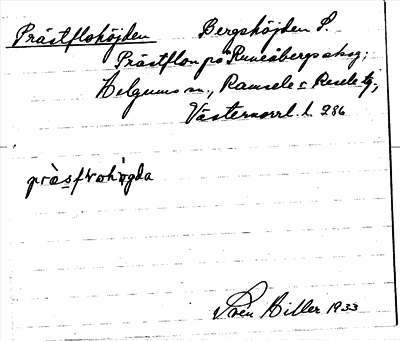 Prästflohöjden Bergshöjden P.
Prästflon på Runeåbergs skog;
Helgums sn., Ramsele o. Resele tg;
Västernorrl. l. 286
Sven Hiller 1933